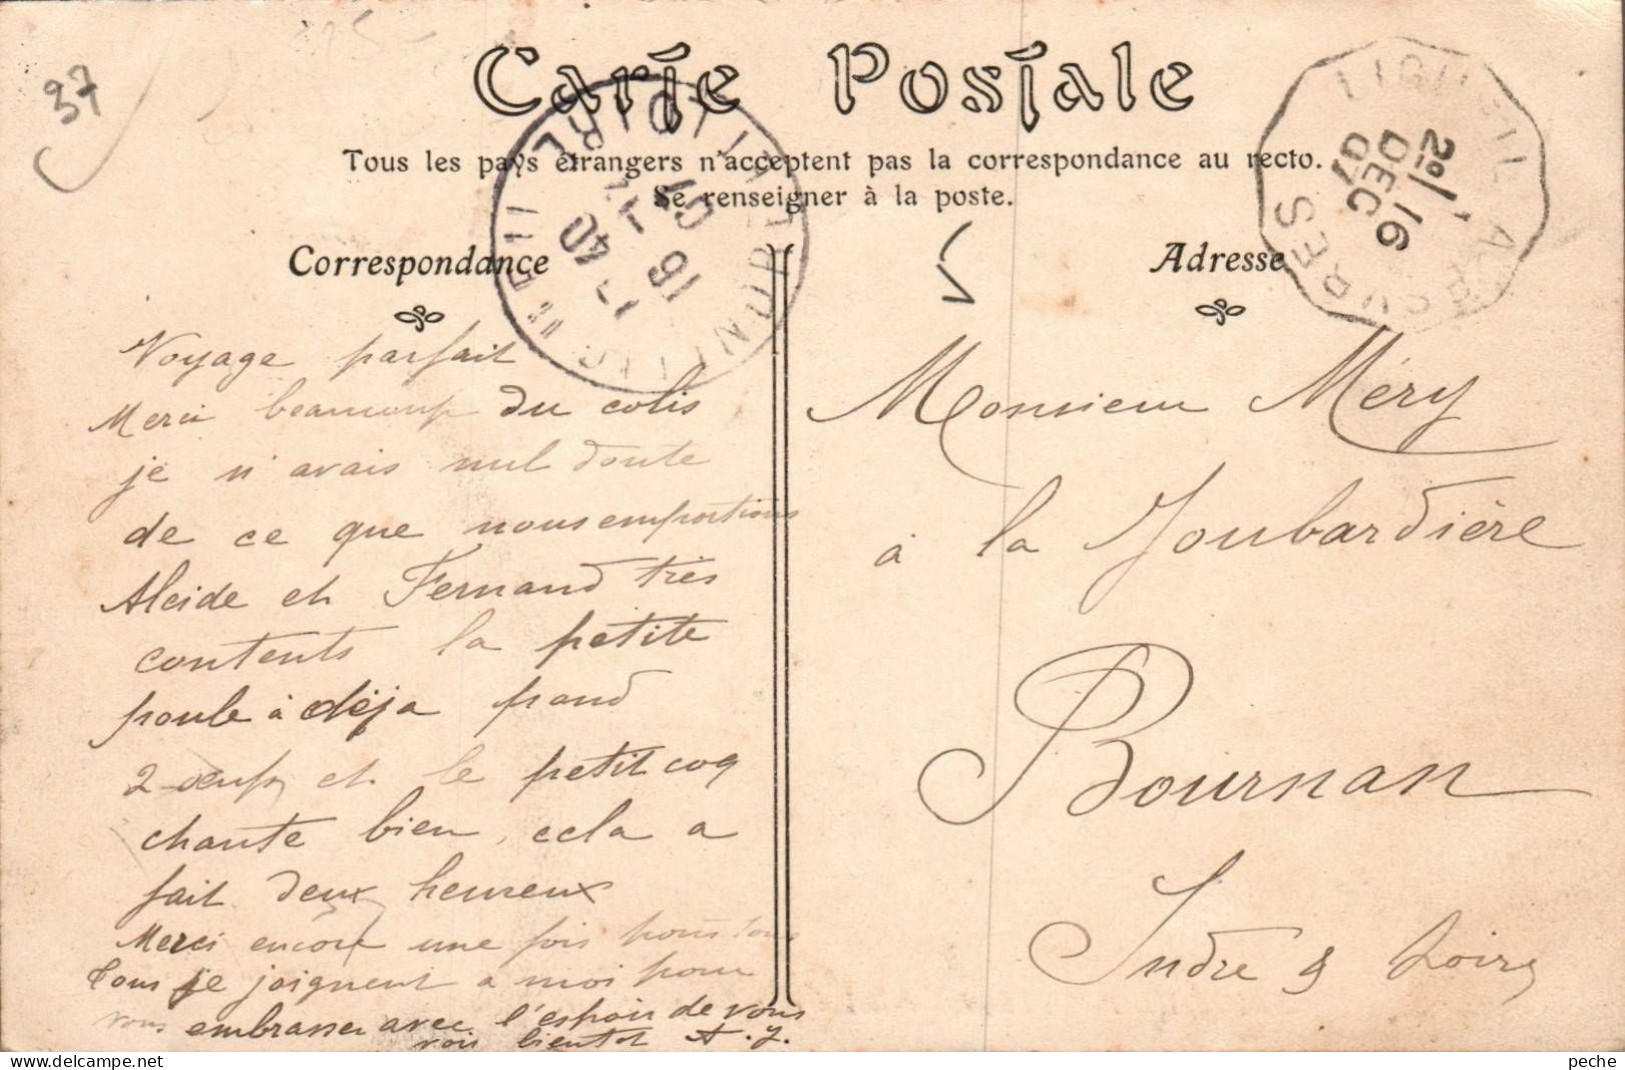 37
Carte Postale
Tous les pays étrangers n'acceptent pas la correspondance au recto.
Se renseigner à la poste.
Correspondance
Adresse
LIGUEIL A ESVRES
2º/ 16
DEC
07
17 40
16 12
07
Voyage parfait
Merci beaucoup du colis
je n'avais nul doute
de ce que nous emportions
Alcide et Fernand très
contents la petite
poule à déja pond
2 oeufs et le petit coq
chante bien, cela a
fait deux heureux
Merci encore une fois pour tous
Tous se joignent a moi pour
vous embrasser avec l'espoir de vous
voir bientot A. J.
Monsieur Méry
à la Joubardière
Bournan
Indre & Loire
peche